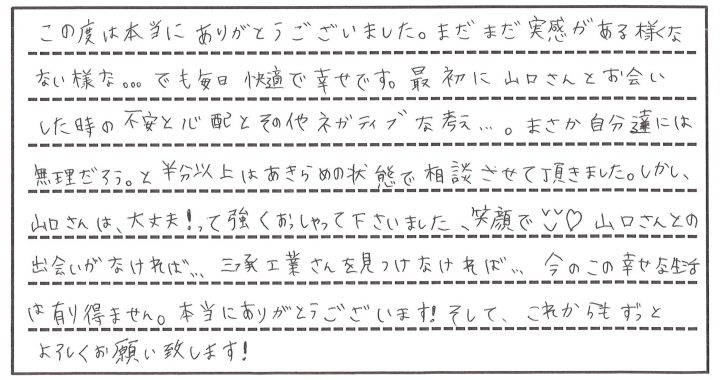 この度は本当に ありがとうございました。まだまだ実感がある様くな
ない様な。。。でも毎日 快適で幸せです。最初に 山口さんとお会い
した時の 不安と心配とその他ネガティブな考え…。まさか自分達には
無理だろう。と半分以上はあきらめの状態で相談させて頂きました。しかし、
山口さんは、大丈夫！って強くおっしゃって下さいました、笑顔で♡ 山口さんとの
出会いがなければ、、、三承工業さんを見つけなければ、、、今のこの幸せな生活
は有り得ません。本当にありがとうございます！そして、これからもずっと
よろしくお願い致します！